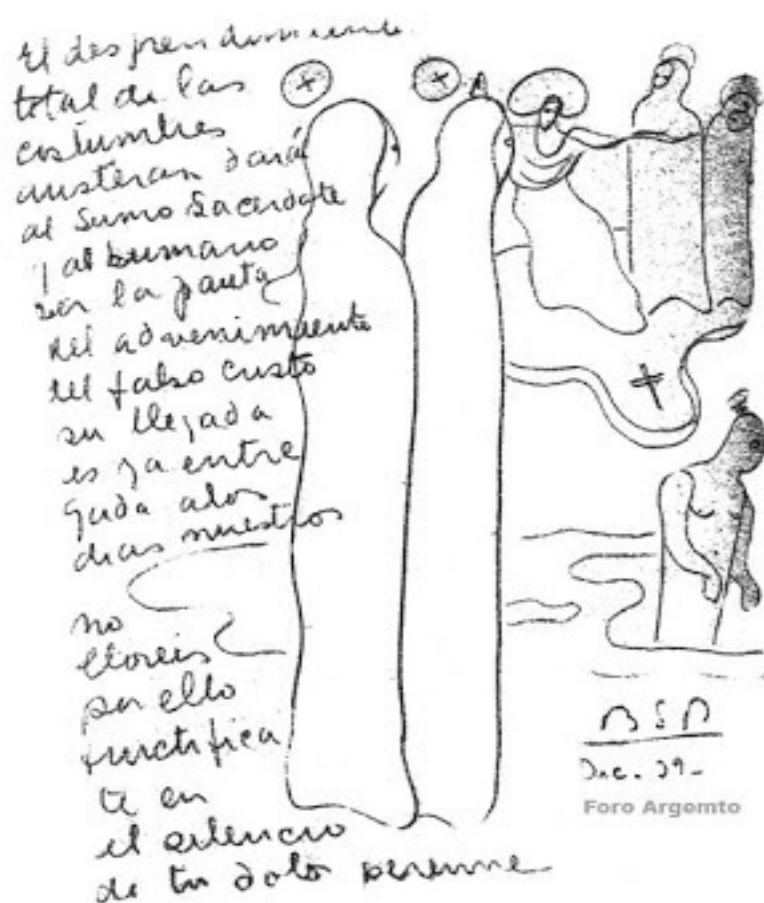 El desprendimiento
total de las
costumbres
austeras dará
al Sumo Sacerdote
y al humano
ser la pauta
del advenimiento
del falso cristo
su llegada
es ya entre
gada a los
dias nuestros
no
lloreis
por ello
fructifica
te en
el silencio
de tu dolor perenne
BSP
Dic. 39-
Foro Argemto